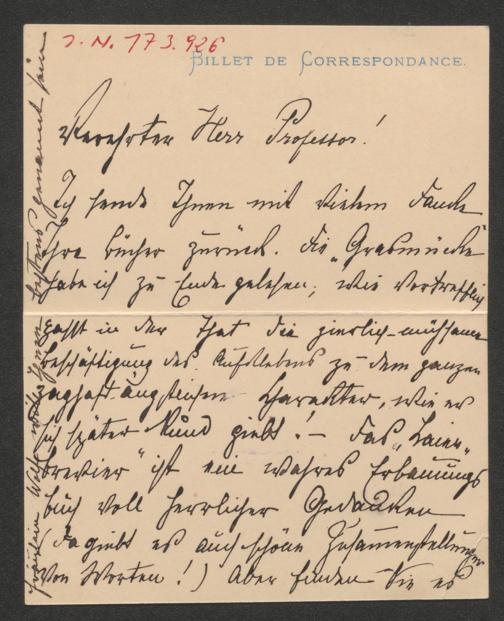 I. N. 173.926
BILLET DE CORRESPONDANCE.
Verehrter Herr Professor!
Ich sende Ihnen mit vielem Danke
Ihre Bücher zurück. Die „Grasmücke"
habe ich zu Ende gelesen; wie vortrefflich
passt in der That die zierlich-mühsame
Beschäftigung des Aufklebens zu dem ganzen
zaghaft ängstlichen Charakter, wie er
sich später kund giebt! – Das „Laien-
brevier" ist ein wahres Erbauungs
buch voll herrlicher Gedanken
(Da giebt es auch schöne Zusammenstellungen
von Worten!) Aber finden Sie es
Fräulein will Ihnen bestens genannt sein